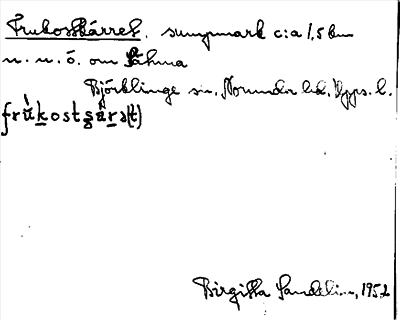 Frukostkärret. sumpmark c:a 1,5 km
n. n. ö. om
Björklinge sn. Norunda hd. Upps. l.
Birgitta Sandelin, 1952